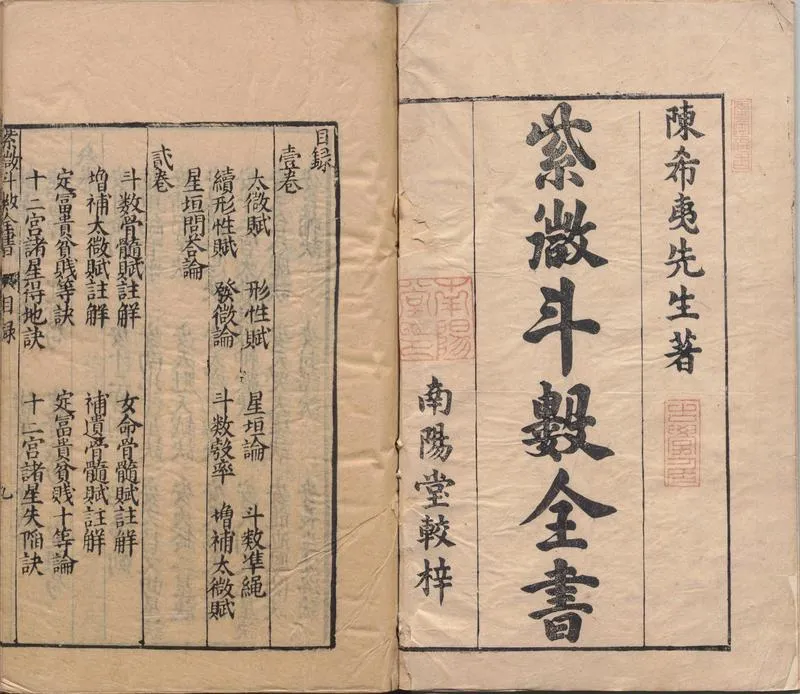 陳希夷先生著
紫微斗數全書
南陽堂較梓
南陽
目録
壹卷
太微賦　形性賦　星垣論　斗数準繩
續形性賦　發微論　斗数彀率　增補太微賦
星垣問荅論
貳卷
斗数骨髓賦註解　女命骨髓賦註解
增補太微賦註解　補遺骨髓賦註解
定富貴貧賤等訣　定富貴貧賤十等論
十二宮諸星得地訣　十二宮諸星失陷訣
紫微斗数全書　目録　九